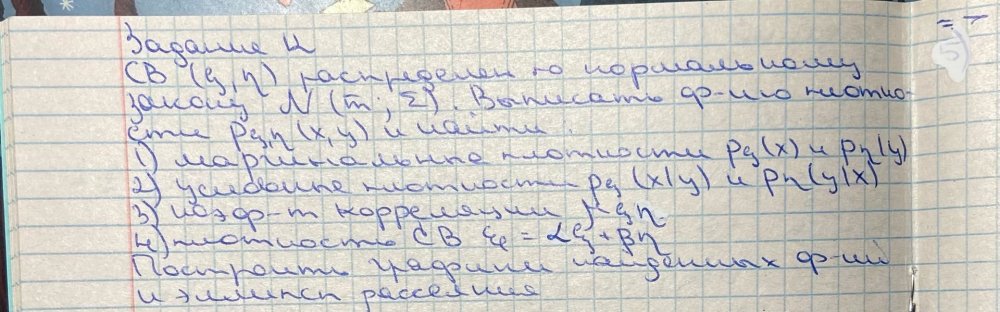 = 7
5
Задание 4
СВ (ξ, η) распределен по нормальному
закону N (m̄, Σ). Выписать ф-ию плотно-
сти pξη (x, y) и найти:
1) маргинальные плотности pξ(x) и pη(y)
2) условные плотности pξ (x|y) и pη(y|x)
3) коэф-т корреляции ξη
4) плотность СВ = αξ + βη
Построить графики найденных ф-ий
и эллипсы рассеяния